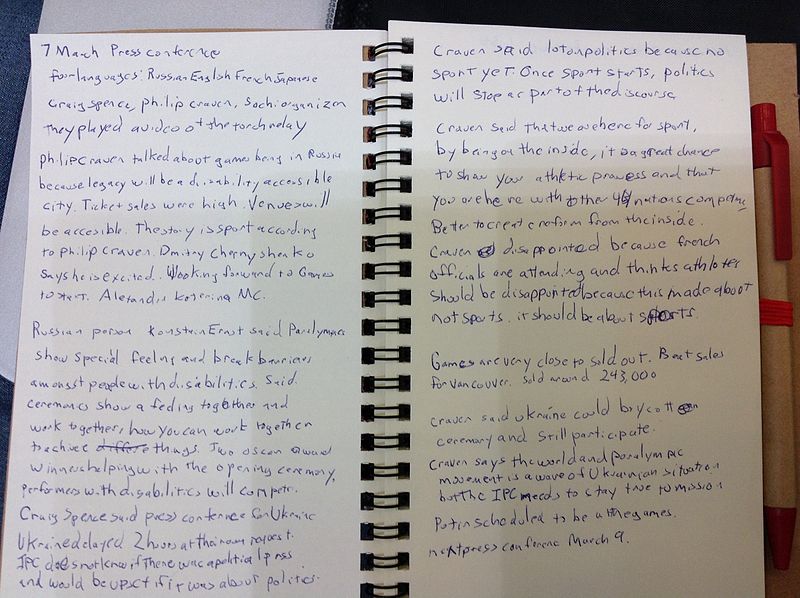 7 March Press conference
four languages: Russian English French Japanese
Craig Spence, philip craven, Sochi organizer
They played a video of the torch relay
philip Craven talked about games being in Russia
because legacy will be a disability accessible
city. Ticket sales were high. Venues will
be accessible. The story is sport according
to philip Craven. Dmitry Chernyshenko
says he is excited. Looking forward to Games
to start. Alexandra Kosterina MC.
Russian person Konstain Ernst said Paralympics
show special feeling and break barriers
amongst people with disabilities. Said
ceremonies show a feeling together and
work together, how you can work together
to achieve things. Two oscar award
winners helping with the opening ceremony,
performers with disabilities will compete.
Craig Spence said press conference for Ukraine
Ukraine delayed 2 hours at their own request.
IPC does not know if there was a political press
and would be upset if it was about politics.
Craven said lot on politics because no
sport yet. Once sport starts, politics
will stop as part of the discourse.
Craven said that we are here for sport,
by being on the inside, it is a great chance
to show your athletic prowess and that
you are here with other 44 nations competing
Better to create reform from the inside.
Craven disappointed because french
officials are attending and thinks athletes
should be disappointed because this made about
not sports. it should be about sports.
Games are very close to sold out. Beat sales
for vancouver. sold around 243,000
craven said ukraine could boycott
ceremony and still participate.
Craven says the world and paralympic
movement is aware of Ukrainian situation
but the IPC needs to stay true to mission
Putin scheduled to be at the games.
next press conference March 9.